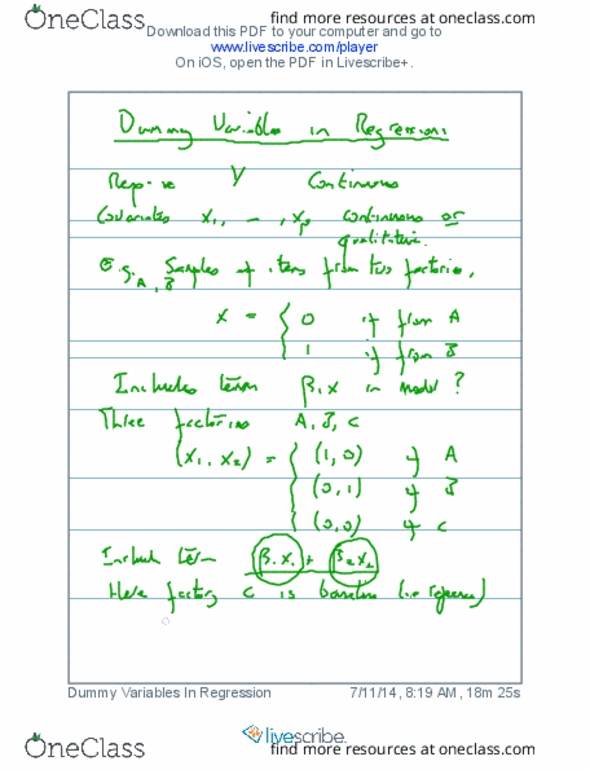 OneClass
find more resources at oneclass.com
Download this PDF to your computer and go to
www.livescribe.com/player
On iOS, open the PDF in Livescribe+.
Dummy Variables in Regressions
Y Continuous
Covariates X₁, –, Xₚ continuous or
qualitative.
e.g. Samples of items from two factories,
A, B
x = { 0 if from A
1 if from B
Includes term β₁x in model?
Three factories A, B, C
(X₁, X₂) = { (1,0) if A
(0,1) if B
(0,0) if C
Include term β₁X₁ + β₂X₂
Here factory C is baseline (i.e. reference)
Dummy Variables In Regression
7/11/14, 8:19 AM, 18m 25s
livescribe.
OneClass
find more resources at oneclass.com